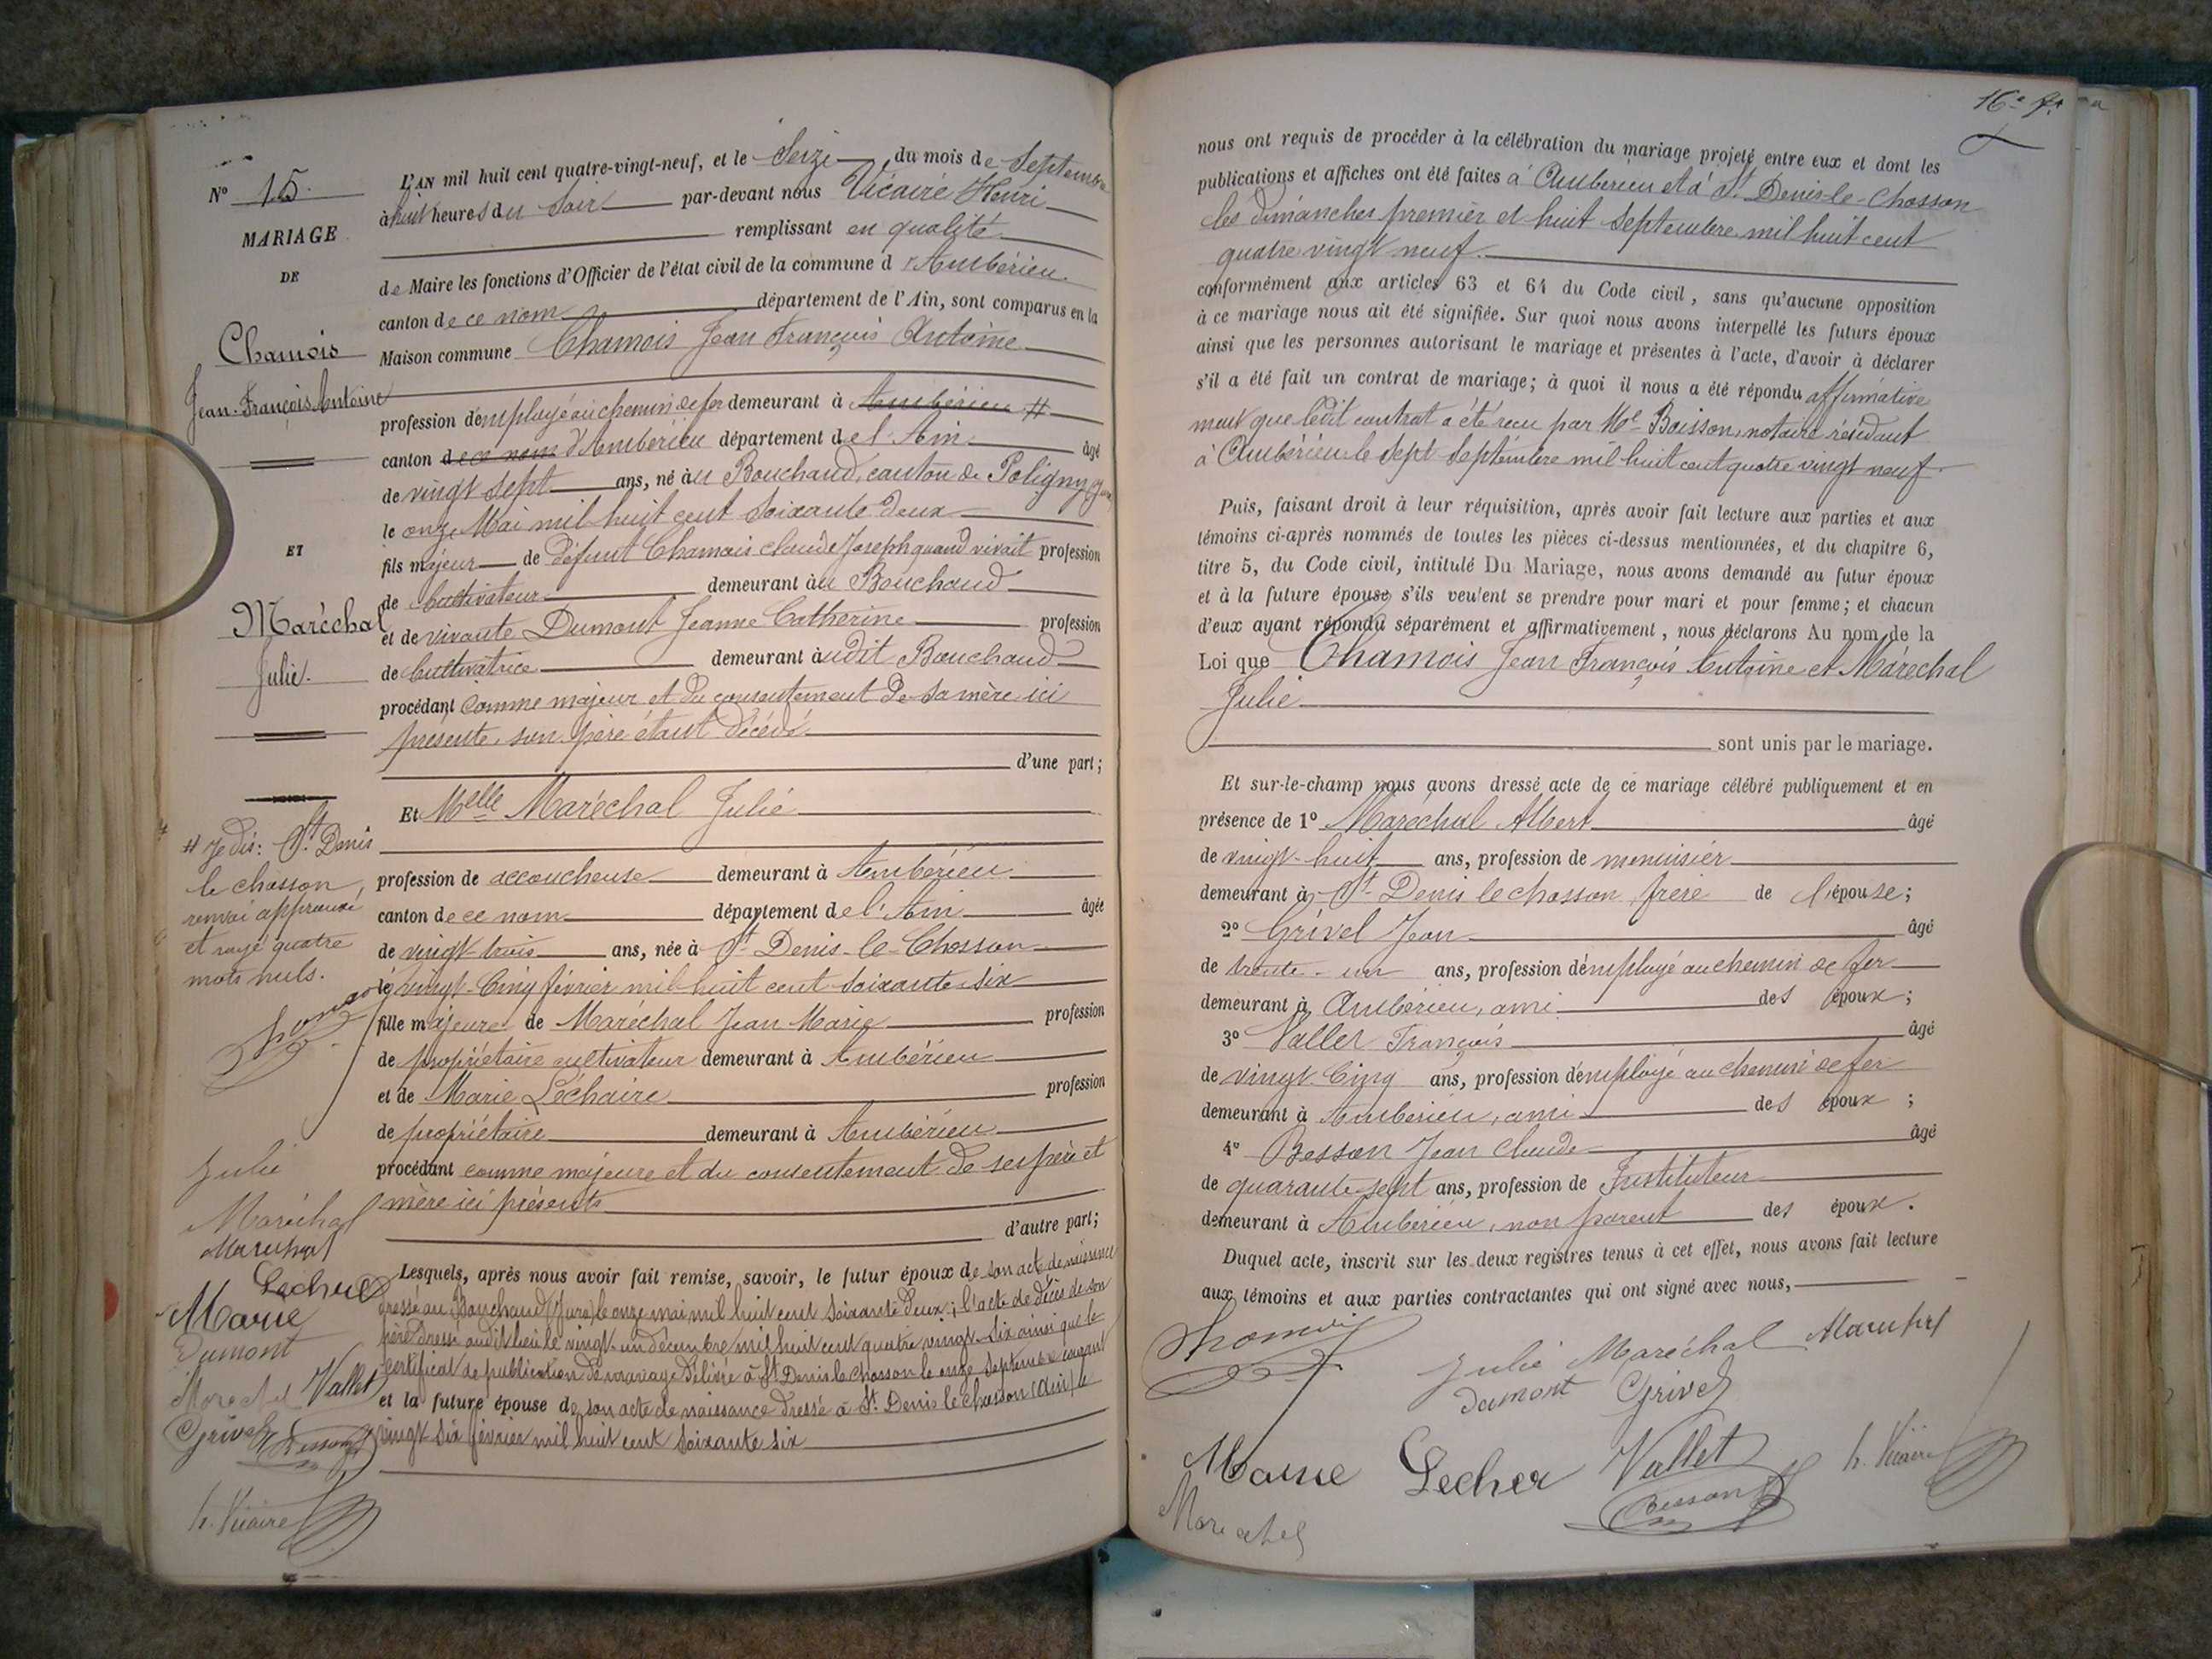 N° 15.
MARIAGE
DE
Chamois
Jean-François Antoine
ET
Maréchal
Julie.
# Je dis: St Denis
le chosson,
renvoi approuvé
et rayé quatre
mots nuls.
Julie
Maréchal
Marechal
Lecher
Marie
Dumont
Marechal Vallet
Grivel Besson
h. Vicaire
L'AN mil huit cent quatre-vingt-neuf, et le Seize du mois de Septembre
à huit heures du Soir par-devant nous Vicaire Henri
remplissant en qualité
de Maire les fonctions d'Officier de l'état civil de la commune d'Ambérieu.
canton de ce nom département de l'Ain, sont comparus en la
Maison commune Chamois Jean François Antoine
profession d'employé au chemin de fer demeurant à Ambérieu #
canton de ce nom d'Ambérieu département de l'Ain âgé
de vingt sept ans, né au Bouchaud, canton de Poligny (Jura)
le onze Mai mil huit cent soixante deux
fils majeur de défunt Chamois Claude Joseph quand vivait profession
de Cultivateur demeurant au Bouchaud
et de vivante Dumont Jeanne Catherine profession
de Cultivatrice demeurant audit Bouchaud
procédant comme majeur et du consentement de sa mère ici
présente, son père étant décédé
d'une part;
Et Melle Maréchal Julie
profession de accoucheuse demeurant à Ambérieu
canton de ce nom département de l'Ain âgée
de vingt-trois ans, née à St Denis-le-Chosson
le vingt-cinq février mil huit cent soixante-six
fille majeure de Maréchal Jean Marie profession
de propriétaire cultivateur demeurant à Ambérieu
et de Marie Léchaire profession
de propriétaire demeurant à Ambérieu
procédant comme majeure et du consentement de ses père et
mère ici présents
d'autre part;
Lesquels, après nous avoir fait remise, savoir, le futur époux de son acte de naissance
dressé au Bouchaud (Jura) le onze mai mil huit cent soixante deux; l'acte de décès de son
père dressé audit lieu le vingt-un décembre mil huit cent quatre vingt-six ainsi que le
certificat de publication de mariage délivré à St Denis le chosson le onze Septembre courant
et la future épouse de son acte de naissance dressé à St Denis le chosson (Ain) le
vingt-six février mil huit cent soixante six
16e
nous ont requis de procéder à la célébration du mariage projeté entre eux et dont les
publications et affiches ont été faites à Ambérieu et à St Denis-le-Chosson
les dimanches premier et huit Septembre mil huit cent
quatre vingt neuf.
conformément aux articles 63 et 64 du Code civil, sans qu'aucune opposition
à ce mariage nous ait été signifiée. Sur quoi nous avons interpellé les futurs époux
ainsi que les personnes autorisant le mariage et présentes à l'acte, d'avoir à déclarer
s'il a été fait un contrat de mariage; à quoi il nous a été répondu affirmative
ment que ledit contrat a été reçu par Me Boisson, notaire résidant
à Ambérieu le sept Septembre mil huit cent quatre vingt neuf.
Puis, faisant droit à leur réquisition, après avoir fait lecture aux parties et aux
témoins ci-après nommés de toutes les pièces ci-dessus mentionnées, et du chapitre 6,
titre 5, du Code civil, intitulé Du Mariage, nous avons demandé au futur époux
et à la future épouse s'ils veulent se prendre pour mari et pour femme; et chacun
d'eux ayant répondu séparément et affirmativement, nous déclarons Au nom de la
Loi que Chamois Jean François Antoine et Maréchal
Julie
sont unis par le mariage.
Et sur-le-champ nous avons dressé acte de ce mariage célébré publiquement et en
présence de 1° Maréchal Albert âgé
de vingt-huit ans, profession de menuisier
demeurant à St Denis le chosson, frère de l'épouse;
2° Grivel Jean âgé
de trente-un ans, profession d'employé au chemin de fer
demeurant à Ambérieu, ami des époux;
3° Vallet François âgé
de vingt-cinq ans, profession d'employé au chemin de fer
demeurant à Ambérieu, ami des époux;
4° Besson Jean Claude âgé
de quarante-sept ans, profession de Instituteur
demeurant à Ambérieu, non parent des époux.
Duquel acte, inscrit sur les deux registres tenus à cet effet, nous avons fait lecture
aux témoins et aux parties contractantes qui ont signé avec nous,
Chamois
Julie Maréchal Marechal
Dumont Grivel
Marie Lecher Vallet h. Vicaire
Marechal Besson